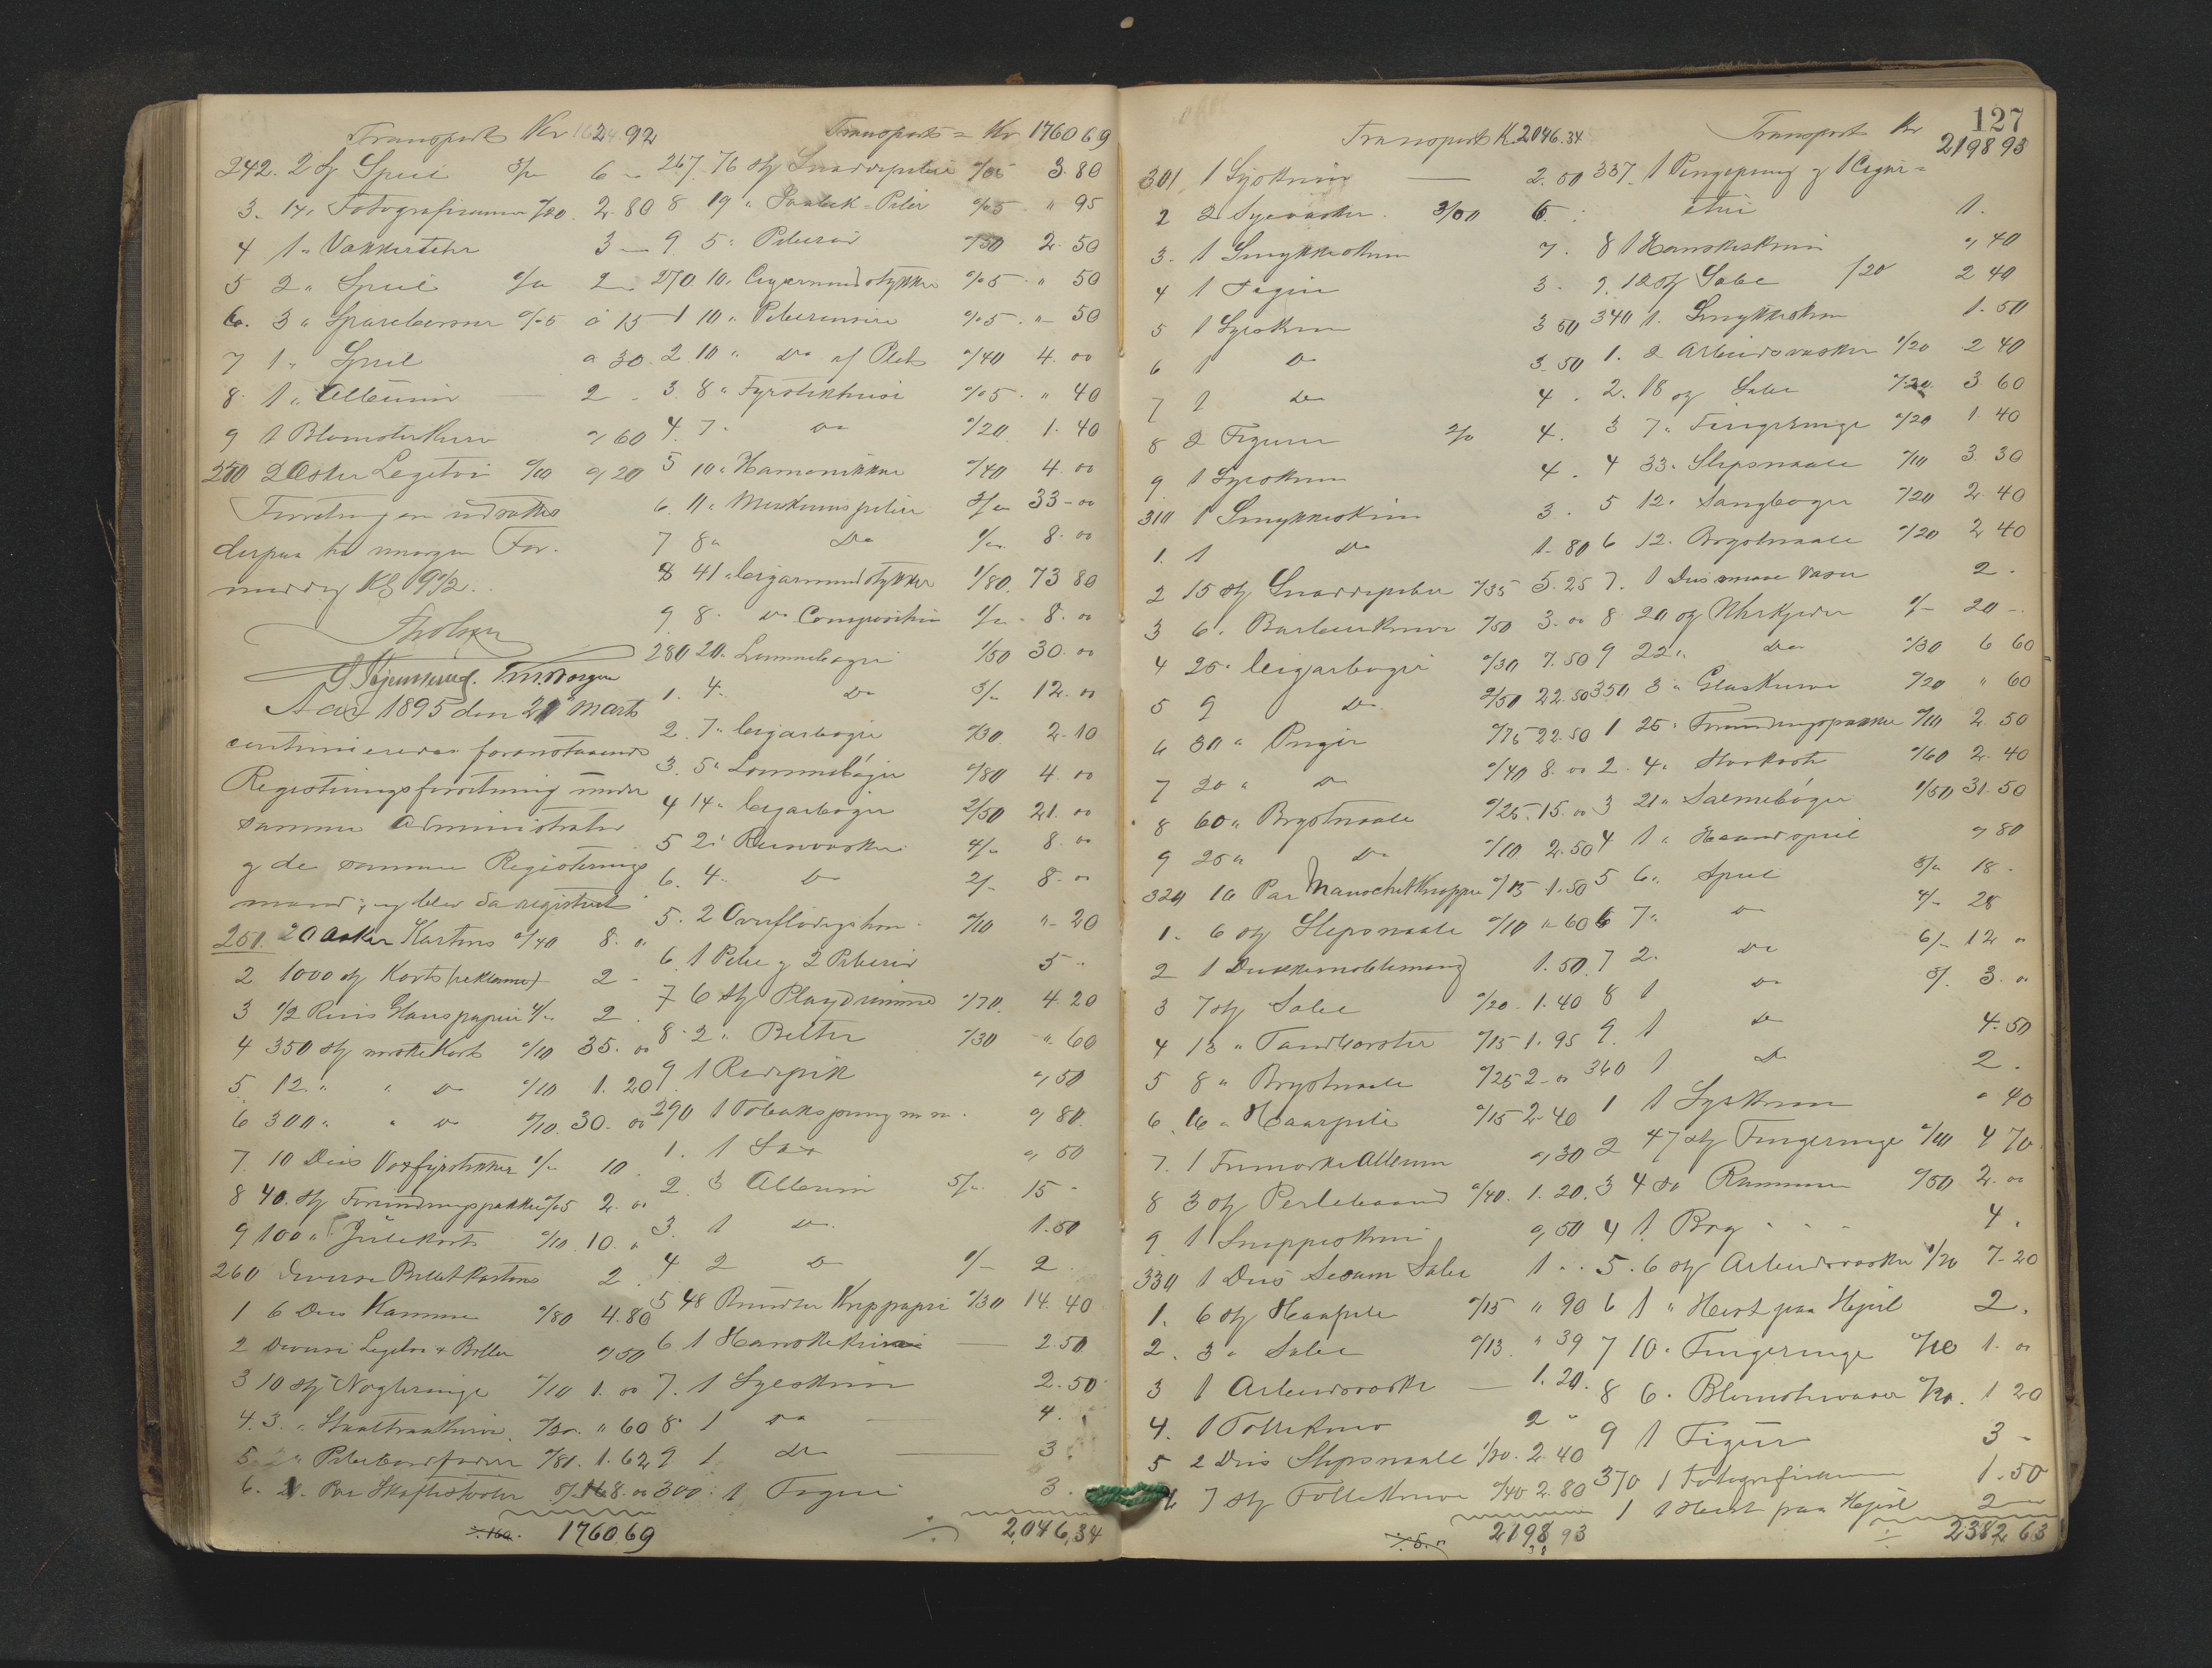 Transport Kr 1624.92
242. 2 st Speil 3/- 6 -
3. 14 " Fotografirammer /20. 2.80
4 1 " Vækkeruhr 3 -
5 2 " Speil 1/- 2 -
6. 3 " Sparebørser /05 " 15
7 1 " Speil " 30
8. 1 " Album — 2 -
9 1 Blomsterkurv " 60
250 2 Æsker Legetøi /10 " 20
Forretningen udsattes
derpaa til imorgen For-
middag Kl 9 1/2.
Aar 1895 den 21 Marts
continueredes foranstaaende
Registreringsforretning under
samme Administrator
og de samme Registrerings
mænd, og blev da registreret
251. 20 Æsker Kartons /40 8. "
2 1000 st Kort (reklame) 2 -
3 1/2 Riis Glanspapir 4/- 2.
4 350 st norske Kort /10 35. "
5. 12 " " Do /10 1.20
6 300 " " Do /10. 30. "
7. 10 Dus Voxfyrstikker 1/- 10.
8 40. st Forundringspakker /05 2. "
9 100 " Julekort /10 10. "
260 diverse Billetkartons 2.
1 6 Dus Kamme /80 4.80
2 Diverse Legetøi & Boller " 50
3 10 st Nøgleringe /10 1. 00
4. 3. " Staaltraadkurve /20. " 60
5. 2 " Piber /81. 1.62
6. 21. Par Skaftestøvler 8/- 168. 00
1760.69
Transport = Kr 1760 69
267. 76 st Snaddepiber /05 3.80
8 19 " -Piber /05 " 95
9. 5 " Piberør /50 2.50
270 10. Cigarmundstykker /05. " 50
1 10 " Piberensere /05. " 50
2. 10 " do af Blik /40 4. 00
3. 8 " Fyrstikhuse /05. " 40
4. 7. Do /20 1.40
5 10 " Harmonikker /40 4. 00
6. 11 " Merskumspiber 3/- 33- 00
7 8 " Do 1/- 8. 00
8 41 " Cigarmundstykker 1/80. 73 80
9 8. Do Composition 1/- 8. 00
280 20. Lommebøger 1/50 30. 00
1. 4. Do 3/- 12. 00
2. 7 " Cigarbøger /30 2.10
3. 5 " Lommebøger /80 4. 00
4 14 " Cigarbøger 1/50 21. 00
5 2 " Reisevæsker 4/- 8. 00
6. 4. Do 2/- 8. 00
5. 2 /10 " 20
6. 1 Pibe og 2 Piberør 5 -
7 6 st Playdrimme /70. 4.20
8 2 " Belter /30 " 60
9 1 " 50
290 1 Tobakspung m m. " 80.
1. 1 " 50
2. 3 Album 5/- 15 -
3. 1 Do. 1.50
4 2 Do 1/- 2
5 48 Bundter /30 14.40
6 1 Hanskeskrin — 2.50
7. 1 Syeskrin 2.50
8 1 Do — 4.
9 1 Do — 3.
300. 1 Figur 3.
2,046,34
127
Transport Kr 2046.34
301 1 Syskrin — 2.50
2 2 Syevæsker. 3/00 6. :
3. 1 Smykkeskrin 7.
4 1 Figur 3.
5 1 Syeskrin 3 50
6 1 Do 3.50
7 1 Do 4.
8 2 Figurer 2/- 4.
9 1 Syeskrin 4.
310 1 Smykkeskrin 3.
1. 1 Do 1.80
2 15 st Snaddepiber /35 5.25
3 6. Barberknive /50 3. 00
4 25. Cigarbøger /30 7.50
5 9 Do 2/50 22.50
6 30 " Punger /75 22.50
7 20 " Do /40 8. 00
8 60 " Brystnaale /25. 15. 00
9 25 " Do /10 2.50
320 10 Par Manschetknapper /15 1.50
1. 6 st Slipsnaale /10 " 60
2 1 1.50
3 7 st Sæbe /20. 1.40
4 13 " Tandbørster /15 1.95
5 8 " Brystnaale /25 2- 00
6. 16 " Haarpile /15 2.40
7. 1 Frimærkealbum " 30
8 3 st Perlebaand /40. 1.20.
9. 1 " 50
330 1 Dus Sæbe 1. -
1. 6 st Haarpile /15 " 90
2. 3 " Sæbe /13. " 39
3 1 Arbeidsvæske — 1.20.
4. 1 Tollekniv 2 -
5 2 Dus Slipsnaale 1/20. 2.40
6 7 st Tolleknive /40 2.80
2198.93
Transport Kr 2198 93
337. 1 Pengepung og 1 Cigar=
etui 1.
8 1 Hanskeskrin " 40
9. 12 st Sæbe /20 2 40
340 1. Smykkeskrin 1.50
1. 2 Arbeidsvæsker 1/20 2 40
2. 18 st Sæbe /20 3 60
3 7 " Fingerringe /20 1.40
4 33. Slipsnaale /10 3.30
5 12. Sangbøger /20 2.40
6 12. Brystnaale /20 2 40
7. 1 Dus smaa Vaser 2.
8 20 st Uhrkjeder 1/- 20 -
9 22 " Do /30 6 60
350 3 " Glaskurve /20 " 60
1 25 " Forundringspakker /10 2.50
2. 4 " /60 2.40
3 21 " Salmebøger 1/50 31.50
4 1 " Haandspeil " 80
5 6 " Speil 3/- 18 -
6 7 " Do 4/- 28
7 2. Do 6/- 12 "
8 1 Do 3/. 3. "
9. 1 Do 4.50
360 1 Do 2.
1 1 Syskrin " 40
2 47 st Fingerringe /10 4 70
3 4 Do Rammer /50 2. 00
4 1 Bog - - - 4.
5. 6 st Arbeidsvæsker 1/20 7.20
6 1 " Hest paa Hjul 2.
7 10 " Fingerringe /10 1. "
8 6. Blomstervaser /20. 1 20
9 1 Figur 3 -
370 1 Fotografiramme 1.50
1 1 Hest paa Hjul 2 —
2382,63